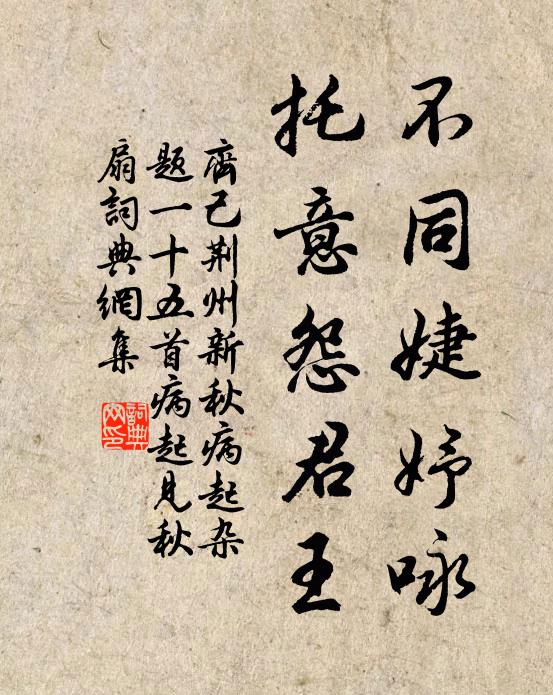 不同婕妤咏
托意怨君王
齊己荆州新秋病起杂
题一十五首病起见秋
扇詞典網集
詞典
网印